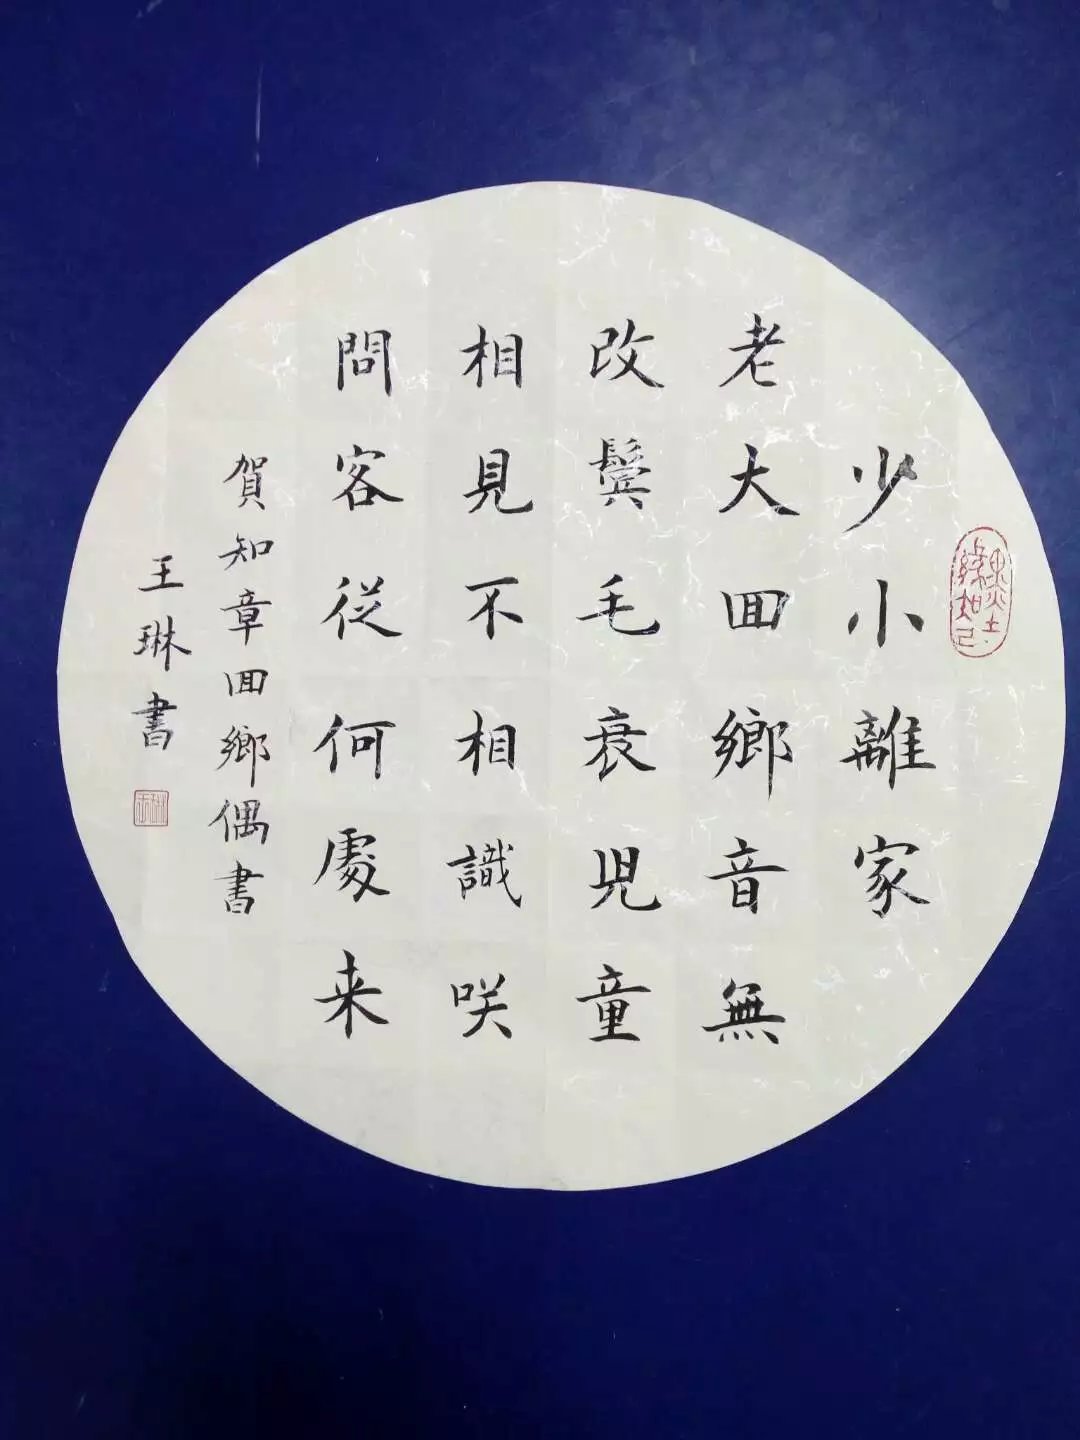 少小離家
老大回鄉音無
改鬓毛衰児童
相見不相識咲
問客従何處来
賀知章回鄉偶書
王琳書